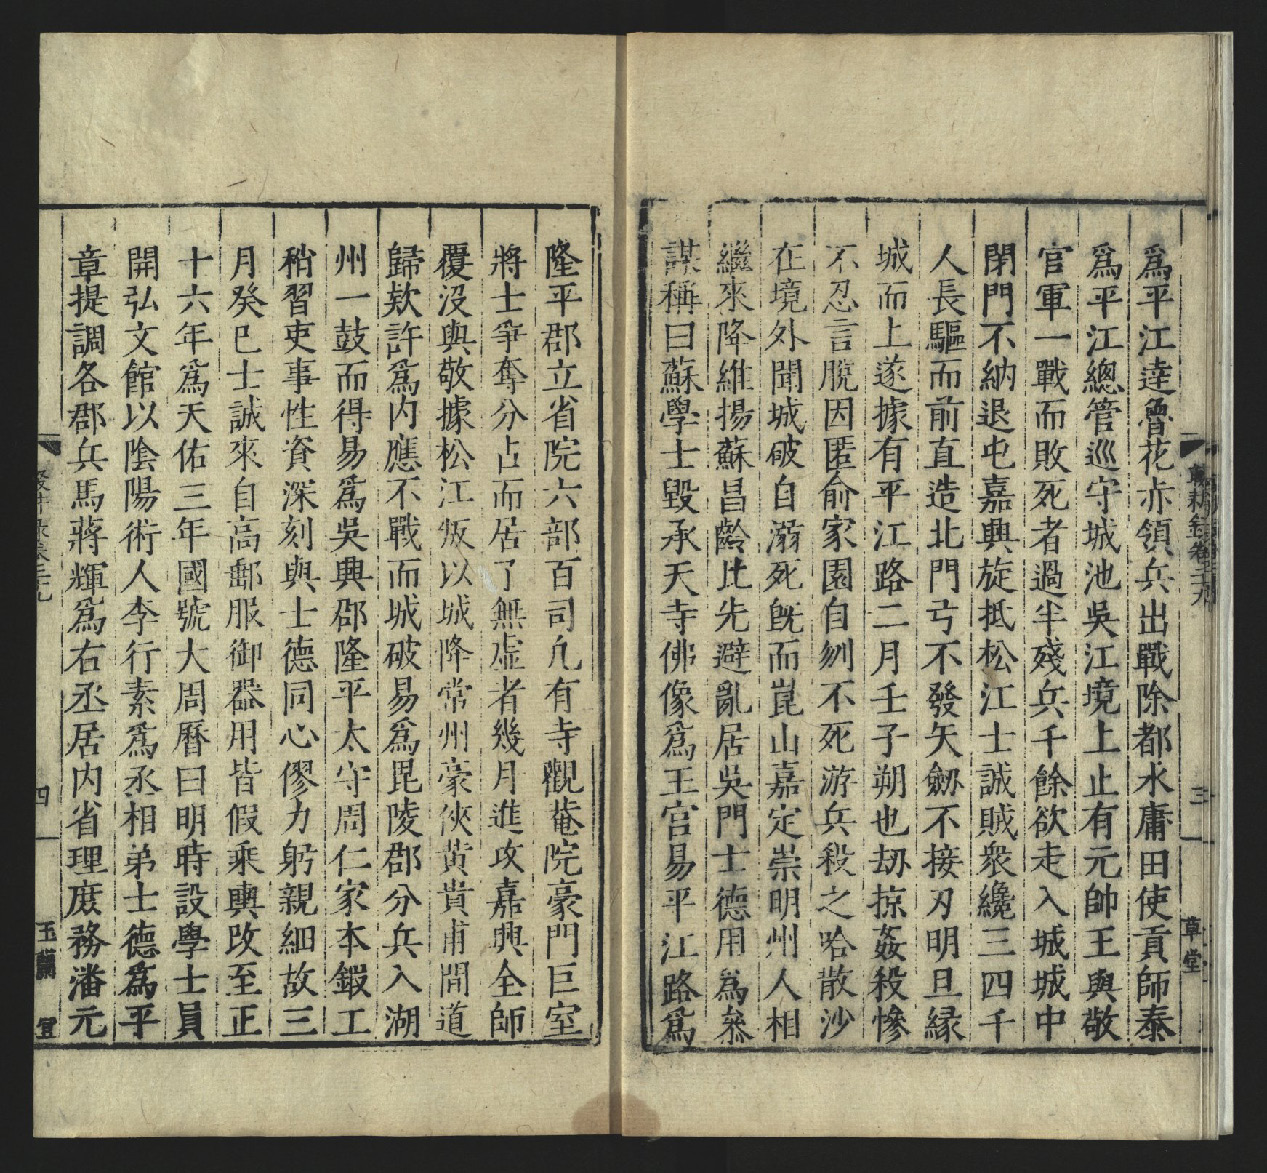 爲平江達魯花赤領兵出戰除都水庸田使貢師泰
爲平江總管巡守城池吳江境上止有元帥王與敬
官軍一戰而敗死者過半殘兵千餘欲走入城城中
閉門不納退屯嘉興旋抵松江士誠賊衆纔三四千
人長驅而前直造北門弓不發矢劒不接刃明旦緣
城而上遂據有平江路二月壬子朔也刼掠姦殺慘
不忍言脫因匿俞家園自刎不死游兵殺之哈散沙
在境外聞城破自溺死旣而崑山嘉定崇明州人相
繼來降維揚蘇昌齡比先避亂居吳門士德用爲叅
謀稱曰蘇學士毀承天寺佛像爲王宮易平江路爲
隆平郡立省院六部百司凢有寺觀菴院豪門巨室
將士爭奪分占而居了無虛者幾月進攻嘉興全師
覆沒與敬據松江叛以城降常州豪俠黃貴甫間道
歸欵許爲内應不戰而城破易爲毘陵郡分兵入湖
州一鼓而得易爲吳興郡隆平太守周仁家本鍜工
稍習吏事性資深刻與士德同心僇力躬親細故三
月癸巳士誠來自高郵服御器用皆假乘輿改至正
十六年爲天佑三年國號大周曆曰明時設學士員
開弘文館以陰陽術人李行素爲丞相弟士德爲平
章提調各郡兵馬蔣輝爲右丞居内省理庶務潘元
四
玉蘭